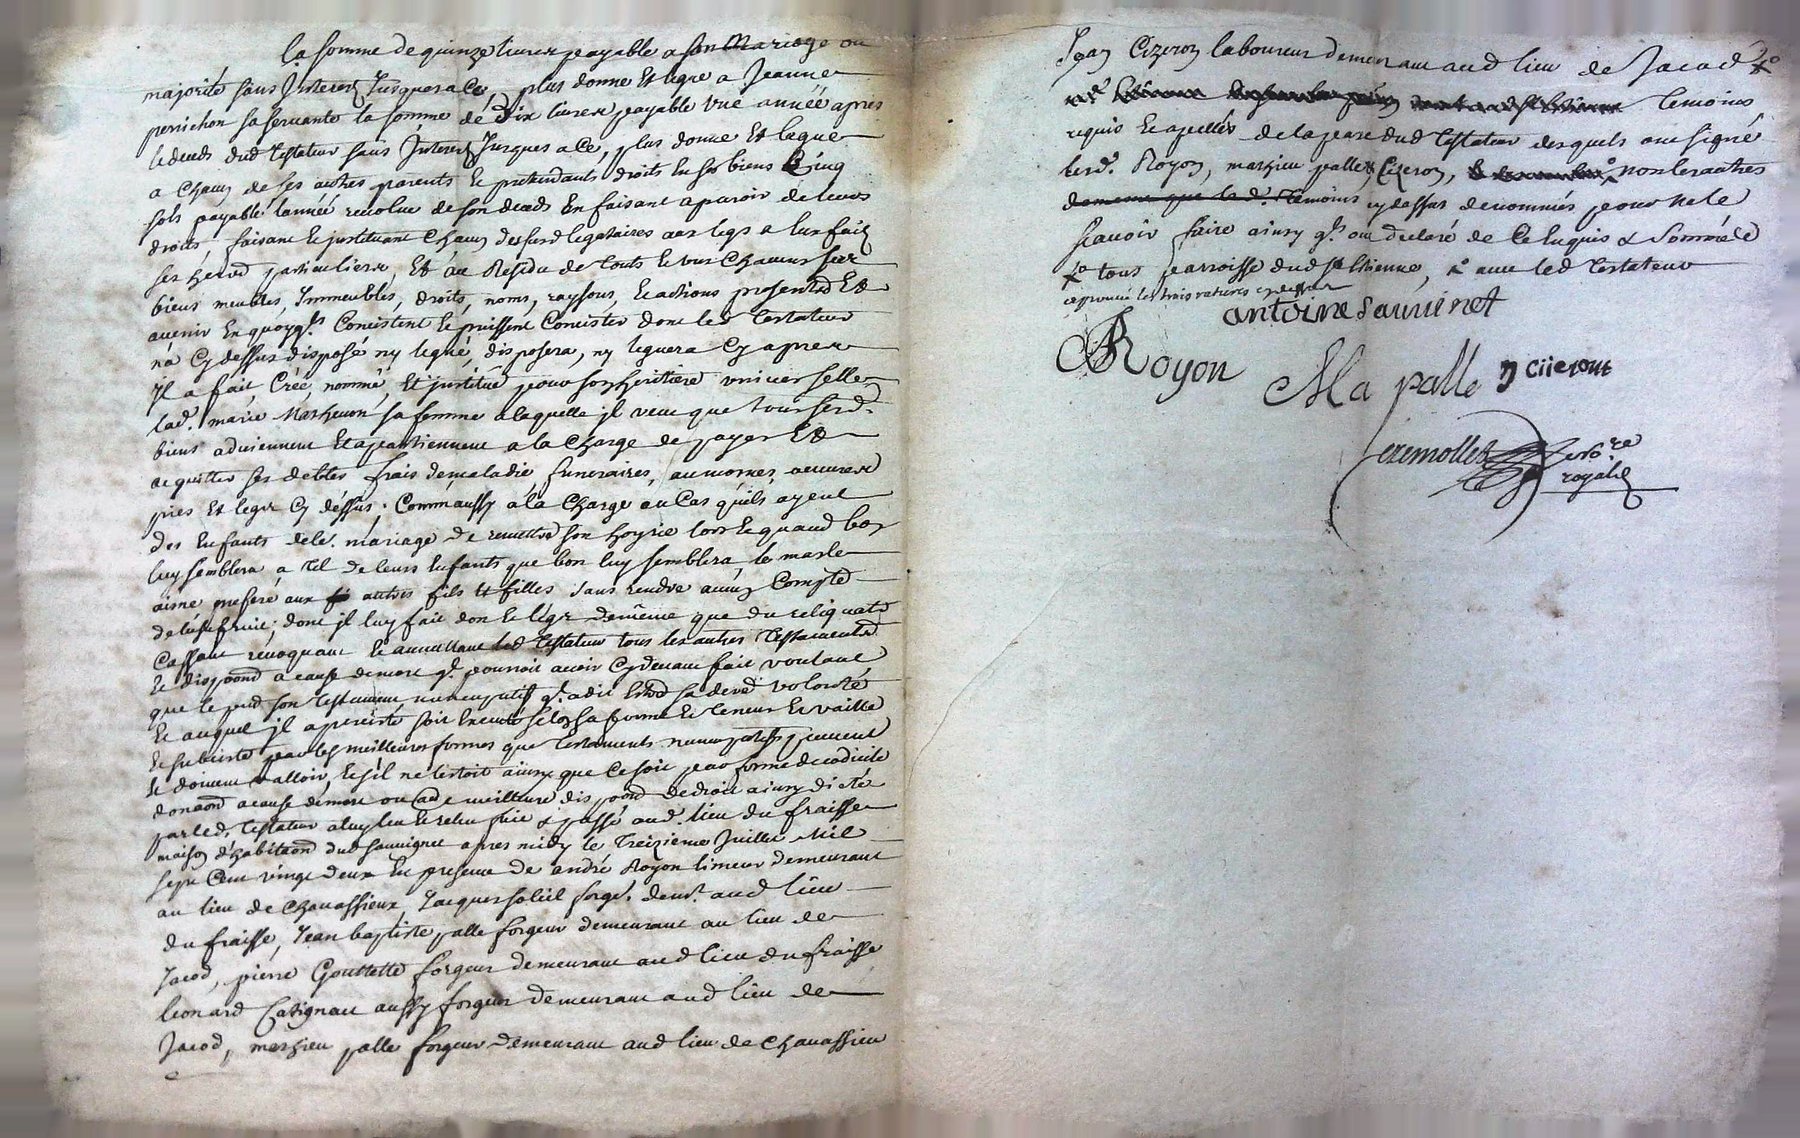 la somme de quinze livres payable a son Mariage ou
majorité sans Interest Jusques a Ce, plus donne Et legue a Jeanne
perrichon sa servante la somme de dix livres payable une année apres
le deceds dud testateur sans Interest Jusques a Ce, plus donne Et legue
a Chacun de ses autres parents Et pretendants droits En ses biens Cinq
sols payable l'année revolue de son deceds En faisant aparoir de leurs
droits faisant Et justituant Chacun desd legataires aux legs a lux faits
ses herers particuliers, Et au Residu de touts Et uns Chacuns ses
biens meubles, Immeubles, droits, noms, raysons, Et actions presents Et
avenir En quoyq.ls Concistent Et puissent Concister dont led Testateur
n'a Cy dessus disposé ny legué, disposera, ny leguera Cy apres
Il a fait, Créé, nommé, Et justitué pour son heritiere universelle
lad. marie Mathevon sa femme a laquelle jl veut que tous sesd.
biens adviennent Et apartiennent a la Charge de payer Et
acquitter ses debtes frais de maladie, funeraires, aumones, oeuvres
pies Et legs Cy dessus. Comm'aussy a la Charge au Cas qu'ils ayent
des Enfants de le. mariage de remettre son hoyrie lors Et quand bon
luy semblera a tel de leurs Enfants que bon luy semblera, le masle
aisné preferé aux autres fils Et filles sans rendre aucun Compte
de l'usufruit, dont jl luy fait don Et legs de même que du reliquat
Cassant revoquant Et annullant led Testateur tous les autres Testaments
Et dispoons a cause de mort q.l pourroit avoir Cy devant fait voulant
que le pnd son Testament nuncupatif q.l a dit Estre sa dere volonté
Et auquel jl a percisté soit Executé selon sa forme Et Teneur Et vaille
Et subsiste par les meilleures formes que Testaments nuncupatifs peuvent
Et doivent valloir, Et s'il ne l'estoit ainsy que Ce soit par forme de codicile
donaon a cause de mort ou autre meilleure dispoon de droit ainsy dicté
par led. Testateur a luy leu Et releu fait & passé aud. lieu du fraisse
maison d'habitaon dud sauvignet apres midy le Treizieme Juillet Mil
sept Cent vingt deux En presence de andré Royon limeur demeurant
au lieu de Chavassieux Jacques soleil forgr. demt. aud lieu
du fraisse, Jean baptiste palle forgeur demeurant au lieu de
Jacod, pierre Gouttette forgeur demeurant aud lieu du fraisse
leonard Catignau aussy forgeur demeurant aud lieu de
Jacod, mathieu palle forgeur demeurant aud lieu de Chavassieu
Jean Cizeron laboureur demeurant aud lieu de Jacod
Temoins
requis Et apellés de la part dud Testateur desquels ont signé
lesd. Royon, mathieu palle & Cizeron, non les autres
Temoins cy dessus denommés pour ne le
scavoir faire ainsy q.ls ont declaré de Ce Enquis & Sommés
tous parroisse dud st Etienne, avec led Testateur
approuvé les trois ratures cy dessus
antoine sauvinet
Royon
Ma palle
J Ciierout
cizemollet no.re
royal